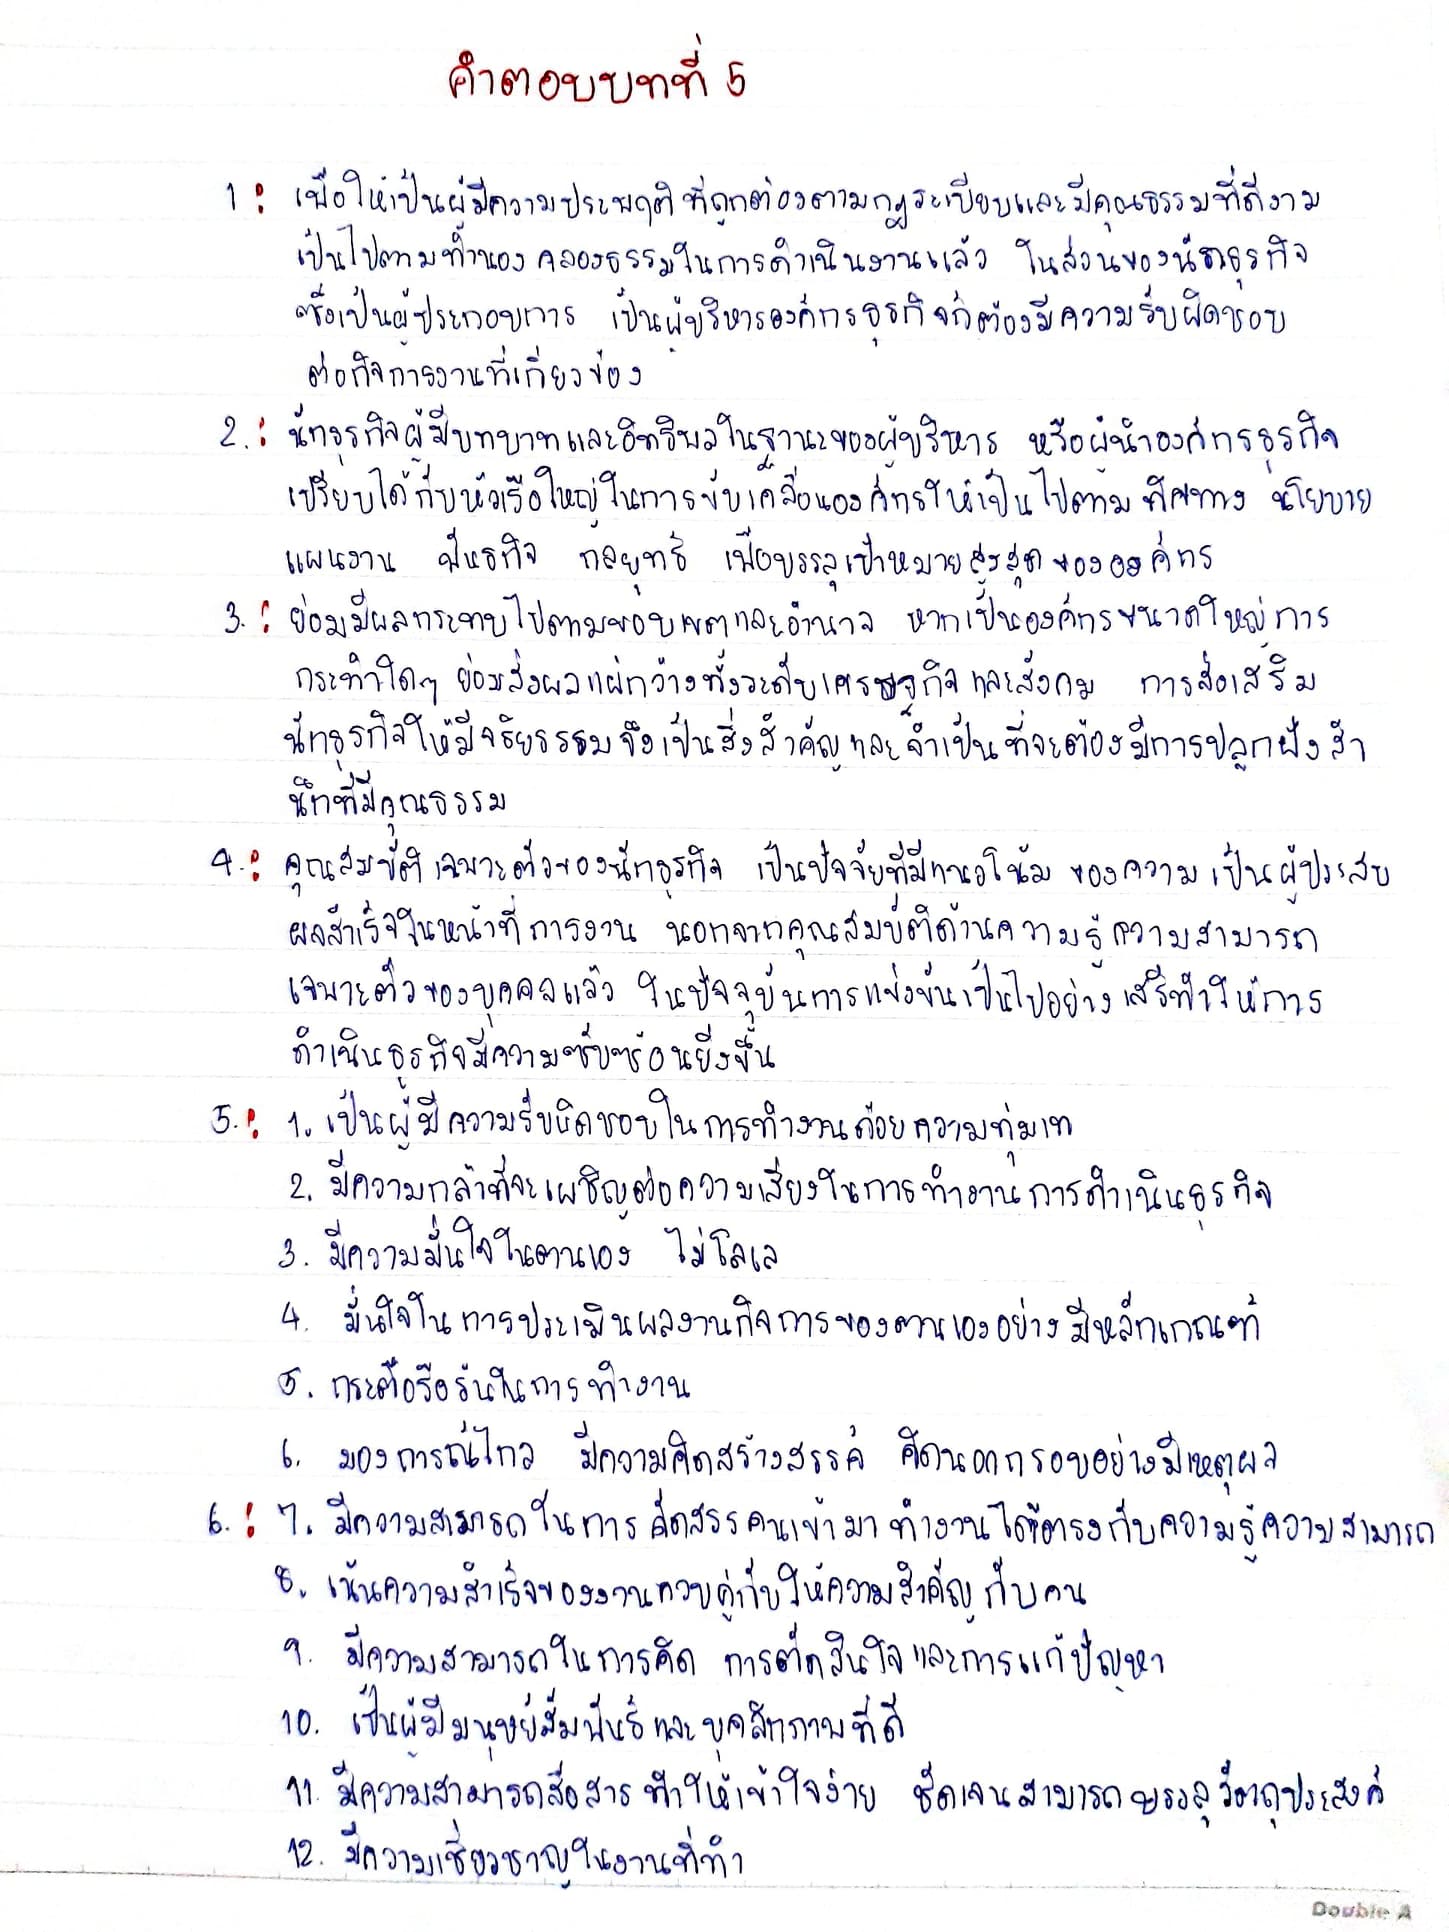 คำตอบบทที่ 5
1: เพื่อให้เป็นผู้มีความประพฤติที่ถูกต้องตามกฎระเบียบและมีคุณธรรมที่ดีงาม
เป็นไปตามทำนองคลองธรรมในการดำเนินงานแล้ว ในส่วนของนักธุรกิจ
ซึ่งเป็นผู้ประกอบการ เป็นผู้บริหารองค์กรธุรกิจก็ต้องมีความรับผิดชอบ
ต่อกิจการงานที่เกี่ยวข้อง
2.: นักธุรกิจผู้มีบทบาทและอิทธิพลในฐานะของผู้บริหาร หรือผู้นำองค์กรธุรกิจ
เปรียบได้กับหัวเรือใหญ่ในการขับเคลื่อนองค์กรให้เป็นไปตามทิศทาง นโยบาย
แผนงาน พันธกิจ กลยุทธ์ เพื่อบรรลุเป้าหมายสูงสุดขององค์กร
3.: ย่อมมีผลกระทบไปตามขอบเขตและอำนาจ หากเป็นองค์กรขนาดใหญ่การ
กระทำใดๆ ย่อมส่งผลแผ่กว้างทั้งระดับเศรษฐกิจและสังคม การส่งเสริม
นักธุรกิจให้มีจริยธรรมจึงเป็นสิ่งสำคัญและจำเป็นที่จะต้องมีการปลูกฝังสำ
นึกที่มีคุณธรรม
4.: คุณสมบัติเฉพาะตัวของนักธุรกิจ เป็นปัจจัยที่มีแนวโน้มของความเป็นผู้ประสบ
ผลสำเร็จในหน้าที่การงาน นอกจากคุณสมบัติด้านความรู้ความสามารถ
เฉพาะตัวของบุคคลแล้ว ในปัจจุบันการแข่งขันเป็นไปอย่างเสรีทำให้การ
ดำเนินธุรกิจมีความซับซ้อนยิ่งขึ้น
5.: 1. เป็นผู้มีความรับผิดชอบในการทำงานด้วยความทุ่มเท
2. มีความกล้าที่จะเผชิญต่อความเสี่ยงในการทำงานการดำเนินธุรกิจ
3. มีความมั่นใจในตนเอง ไม่โลเล
4. มั่นใจในการประเมินผลงานกิจการของตนเองอย่างมีหลักเกณฑ์
5. กระตือรือร้นในการทำงาน
6. มองการณ์ไกล มีความคิดสร้างสรรค์ คิดนอกกรอบอย่างมีเหตุผล
6.: 7. มีความสามารถในการคัดสรรคนเข้ามาทำงานได้ตรงกับความรู้ความสามารถ
8. เน้นความสำเร็จของงานควบคู่กับให้ความสำคัญกับคน
9. มีความสามารถในการคิด การตัดสินใจและการแก้ปัญหา
10. เป็นผู้มีมนุษย์สัมพันธ์และบุคลิกภาพที่ดี
11. มีความสามารถสื่อสารทำให้เข้าใจง่าย ชัดเจนสามารถบรรลุวัตถุประสงค์
12. มีความเชี่ยวชาญในงานที่ทำ
Double A